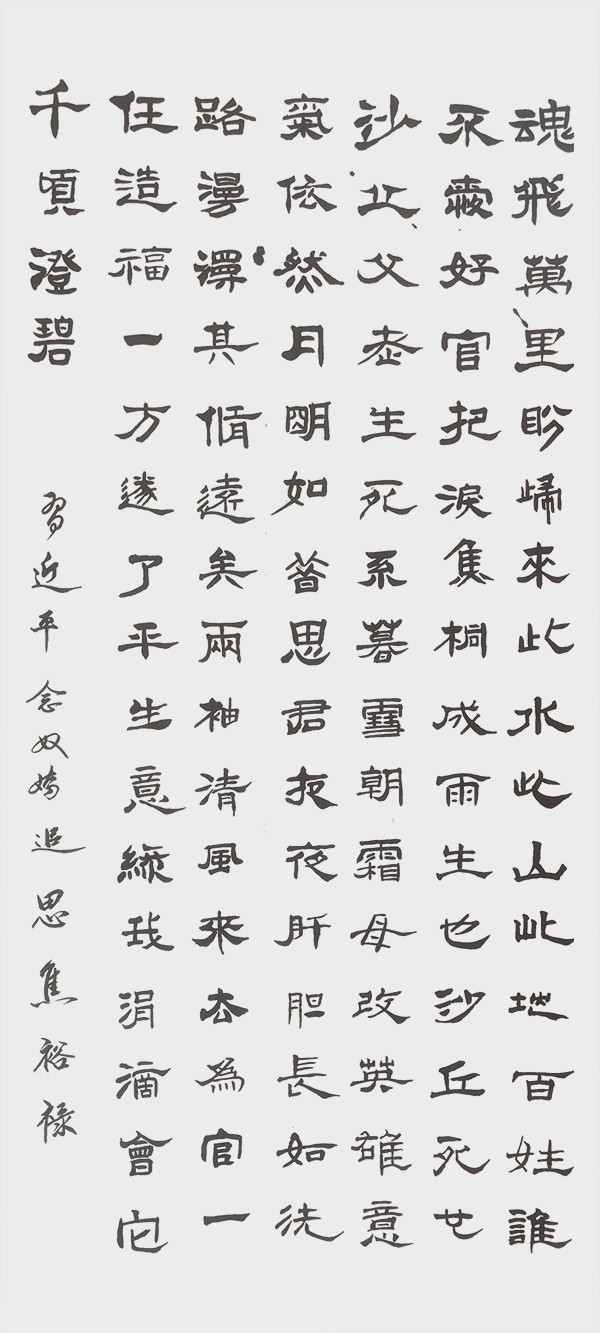 魂飛萬里盼歸來此水此山此地百姓誰
不愛好官把淚焦桐成雨生也沙丘死也
沙丘父老生死系暮雪朝霜毋改英雄意
氣依然月明如昔思君夜夜肝胆長如洗
路漫漫其脩遠矣兩袖清風來去為官一
任造福一方遂了平生意綠我涓滴會它
千頃澄碧
習近平念奴嬌追思焦裕祿